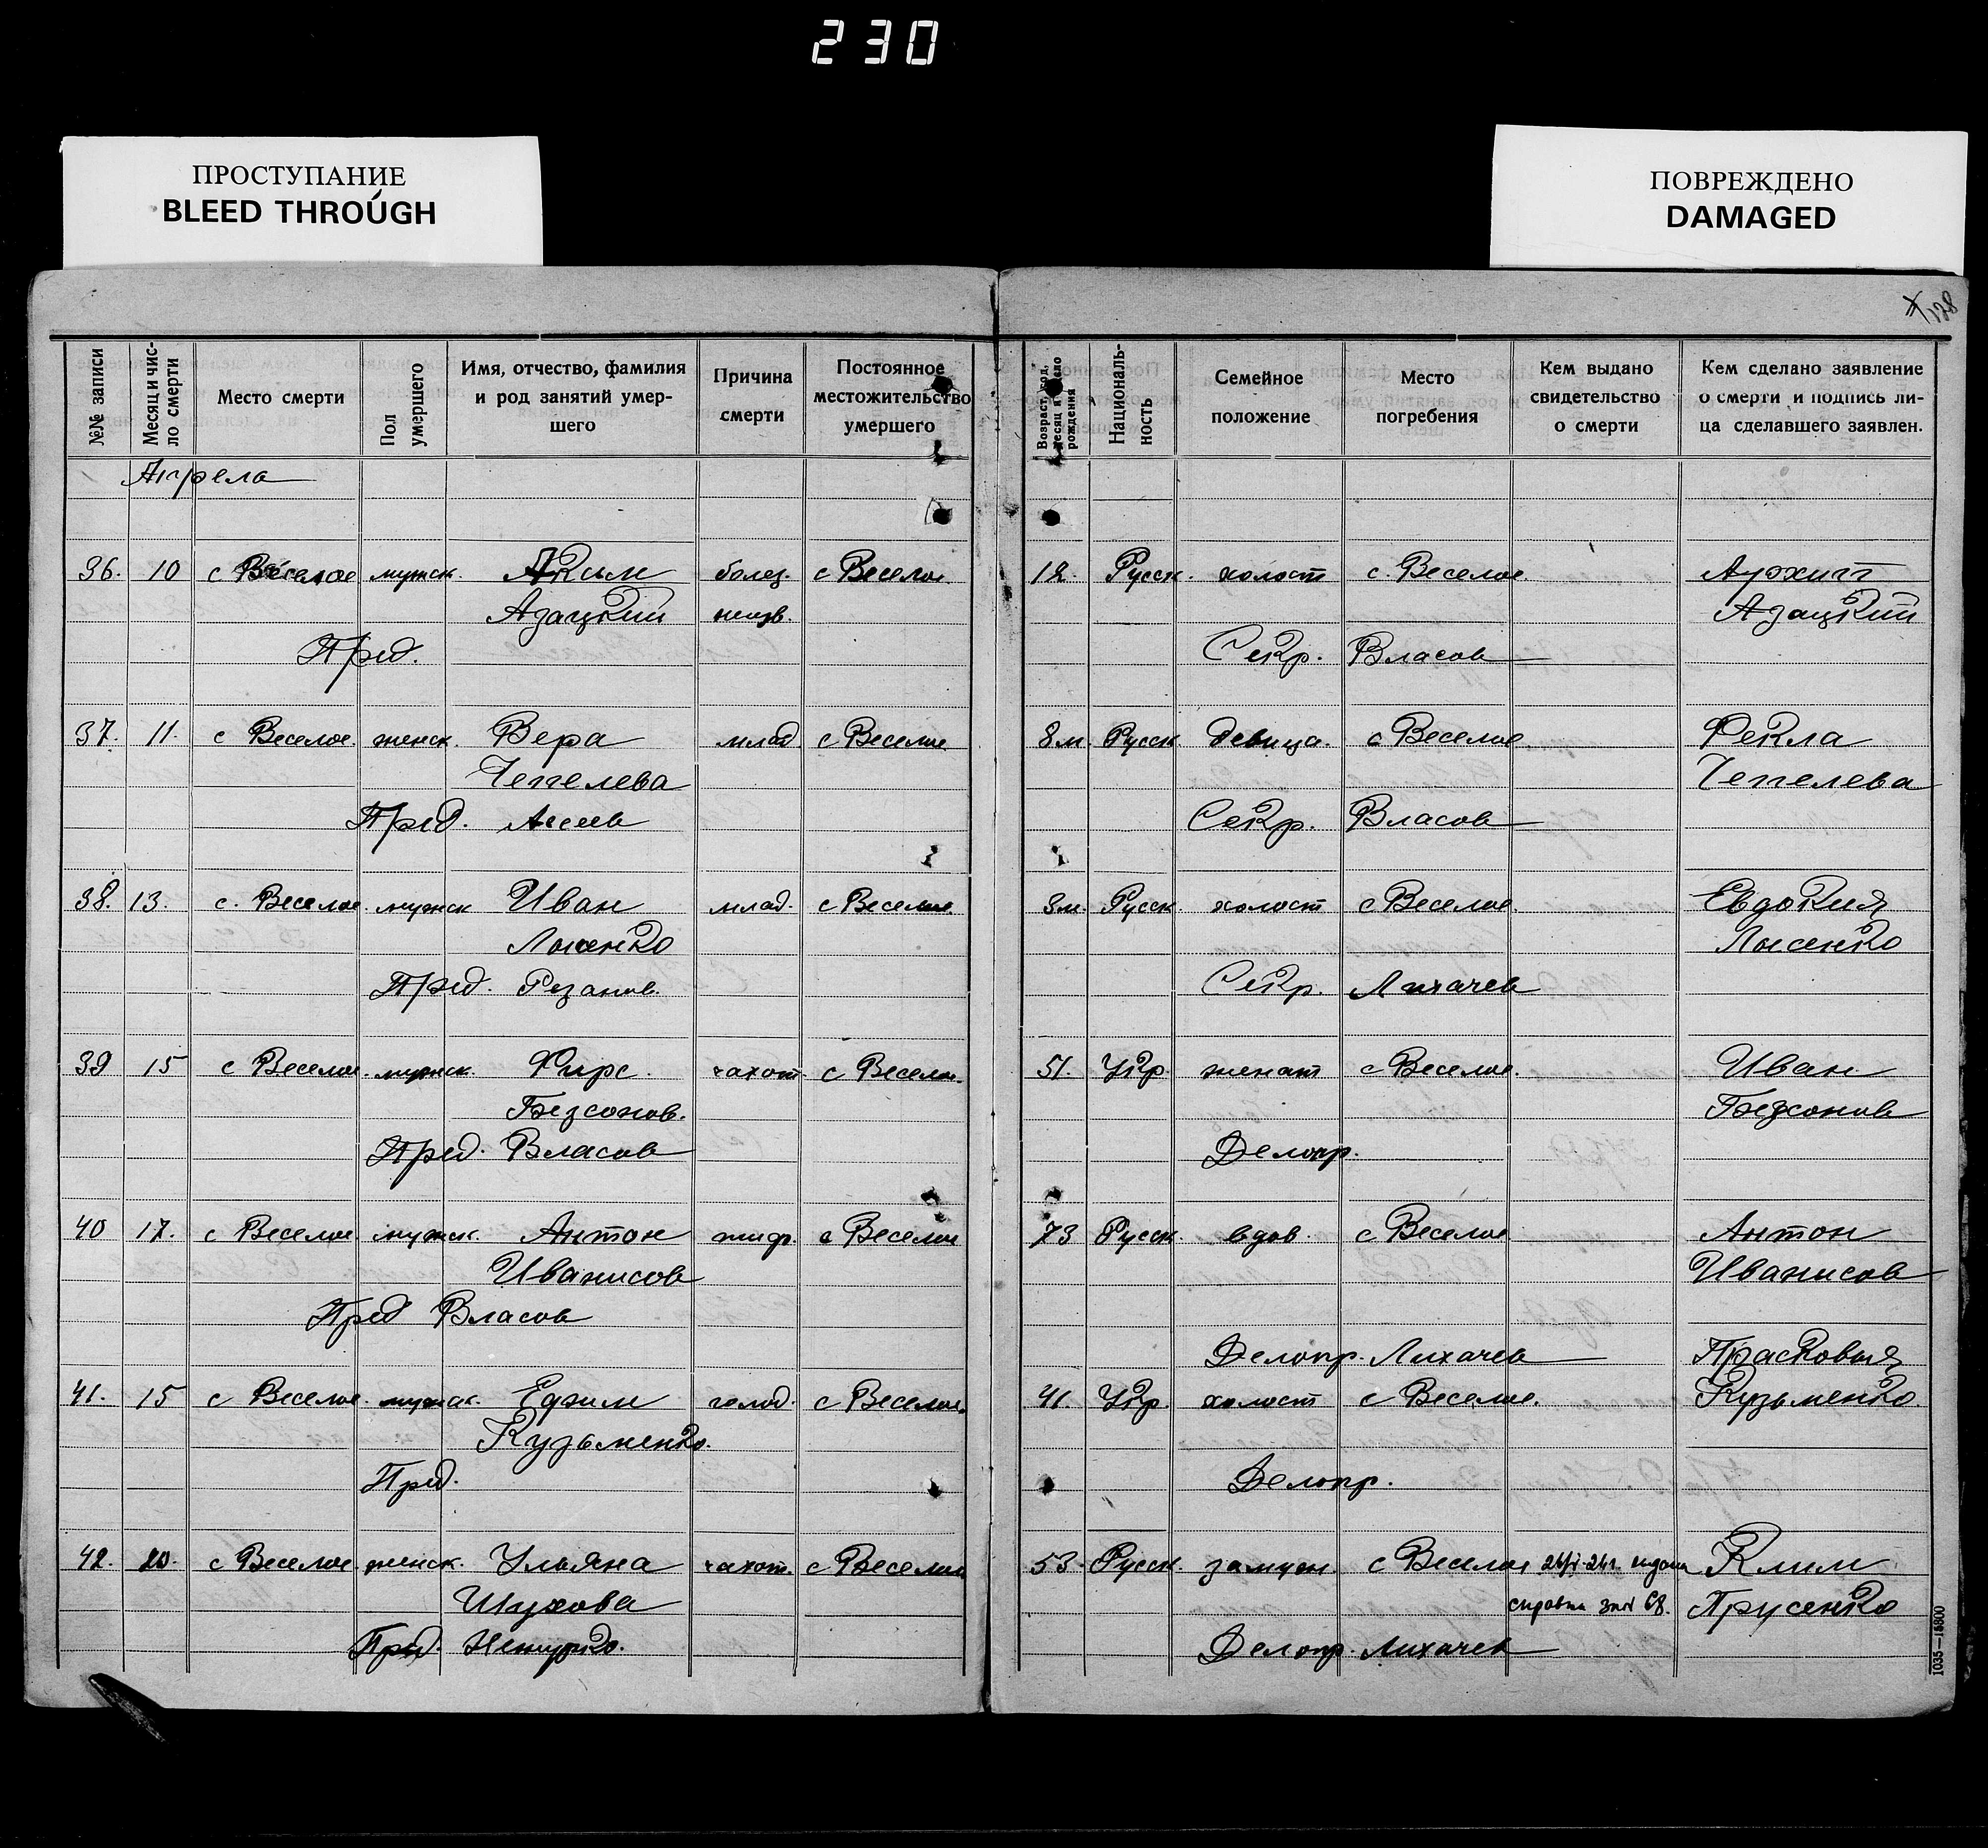 230
ПРОСТУПАНИЕ
BLEED THROUGH
ПОВРЕЖДЕНО
DAMAGED
128
№№ записи
Месяц и чис-
ло смерти
Место смерти
Пол
умершего
Имя, отчество, фамилия
и род занятий умер-
шего
Причина
смерти
Постоянное
местожительство
умершего
Возраст, год,
месяц и число
рождения
Националь-
ность
Семейное
положение
Место
погребения
Кем выдано
свидетельство
о смерти
Кем сделано заявление
о смерти и подпись ли-
ца сделавшего заявлен.
Апреля
36. 10 с Веселое мужск. Аким болез. с Веселое 12. Русск. холост с. Веселое. Архип
Азацкий неизв. Азацкий
Пред. Секр. Власов
37. 11. с Веселое. женск. Вера млад с Веселое 8 м. Русск. девица. с Веселое Фекла
Чепелева Чепелева
Пред. Асеев Секр. Власов
38. 13. с. Веселое мужск Иван млад. с Веселое. 8 м. Русск. холост с Веселое. Евдокия
Лысенко Лысенко
Пред. Резанов. Секр. Лихачев
39 15 с Веселое. мужск. Фирс. чахот. с Веселое. 51. Укр. женат с Веселое. Иван
Безсонов. Безсонов
Пред. Власов Делопр.
40 17. с Веселое мужск. Антон тиф. с Веселое 73 Русск. вдов. с Веселое Антон
Иванисов Иванисов
Пред Власов
Делопр. Лихачев Прасковья
41. 15 с Веселое. мужск. Ефим голод. с Веселое. 41. Укр. холост с Веселое. Кузьменко.
Кузьменко.
Пред. Делопр.
42. 20. с Веселое. женск. Ульяна чахот. с Веселое 53. Русск. замуж. с Веселое Клим
Шухова справка 68. Прусенко
Пред. Делопр. Лихачев
1035—15800